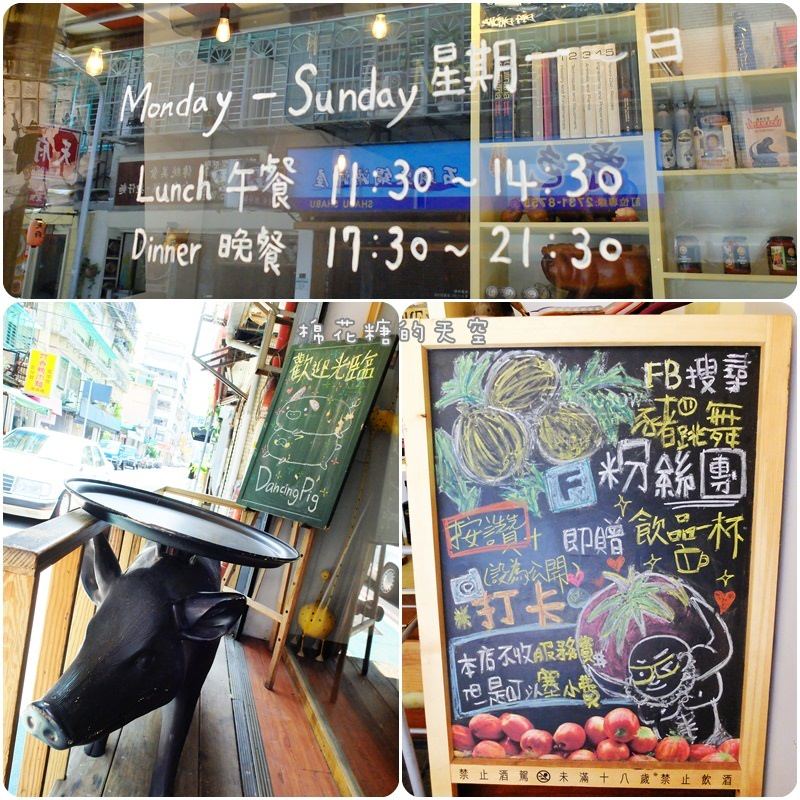 Monday - Sunday 星期一~日
Lunch 午餐 11:30~14:30
Dinner 晚餐 17:30~21:30
SHABU SHABU
棉花糖的天空
歡迎光臨
Dancing Pig
FB搜尋
豬跳舞
粉絲團
按讚+
即贈 飲品一杯
(設為公開)
打卡
本店不收服務費
但是可以塞小費
禁止酒駕 未滿十八歲禁止飲酒